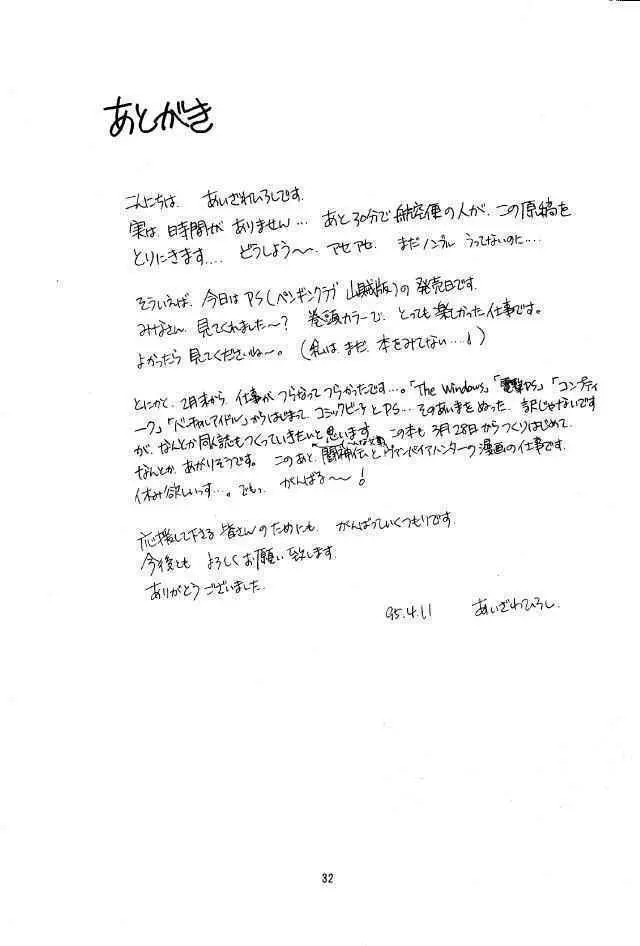 あとがき
こんにちは あいざわひろしです.
実は 時間が ありません… あと30分で 航空便の人が、この原稿を
とりにきます.... どうしよう〜、アセアセ、まだノンブル うってないのに....
そういえば、今日は PS(ペンギンクラブ 山賊版)の 発売日です.
みなさん、見てくれました〜? 巻頭カラーで、とっても楽しかった仕事です。
よかったら 見てくださいね〜。(私は、まだ、本をみてない....!)
とにかく、2月末から、仕事がつらなって つらかったです…。「The Windows」「電撃PS」「コンプティ
ーク」「バーチャルアイドル」からはじまって コミックピー子とPS… そのあいまをぬった 訳じゃないです
が、なんとか 同人誌もつくっていきたいと思います この本も 3月28日からつくりはじめて、
なんとか、あがりそうです。このあと、闘神伝とヴァンパイアハンターの漫画の仕事です.
休み欲しいっす…。でもっ がんばる〜!
応援して下さる 皆さんのためにも がんばっていくつもりです
今後とも よろしくお願い致します
ありがとうございました.
95.4.11 あいざわひろし.
32